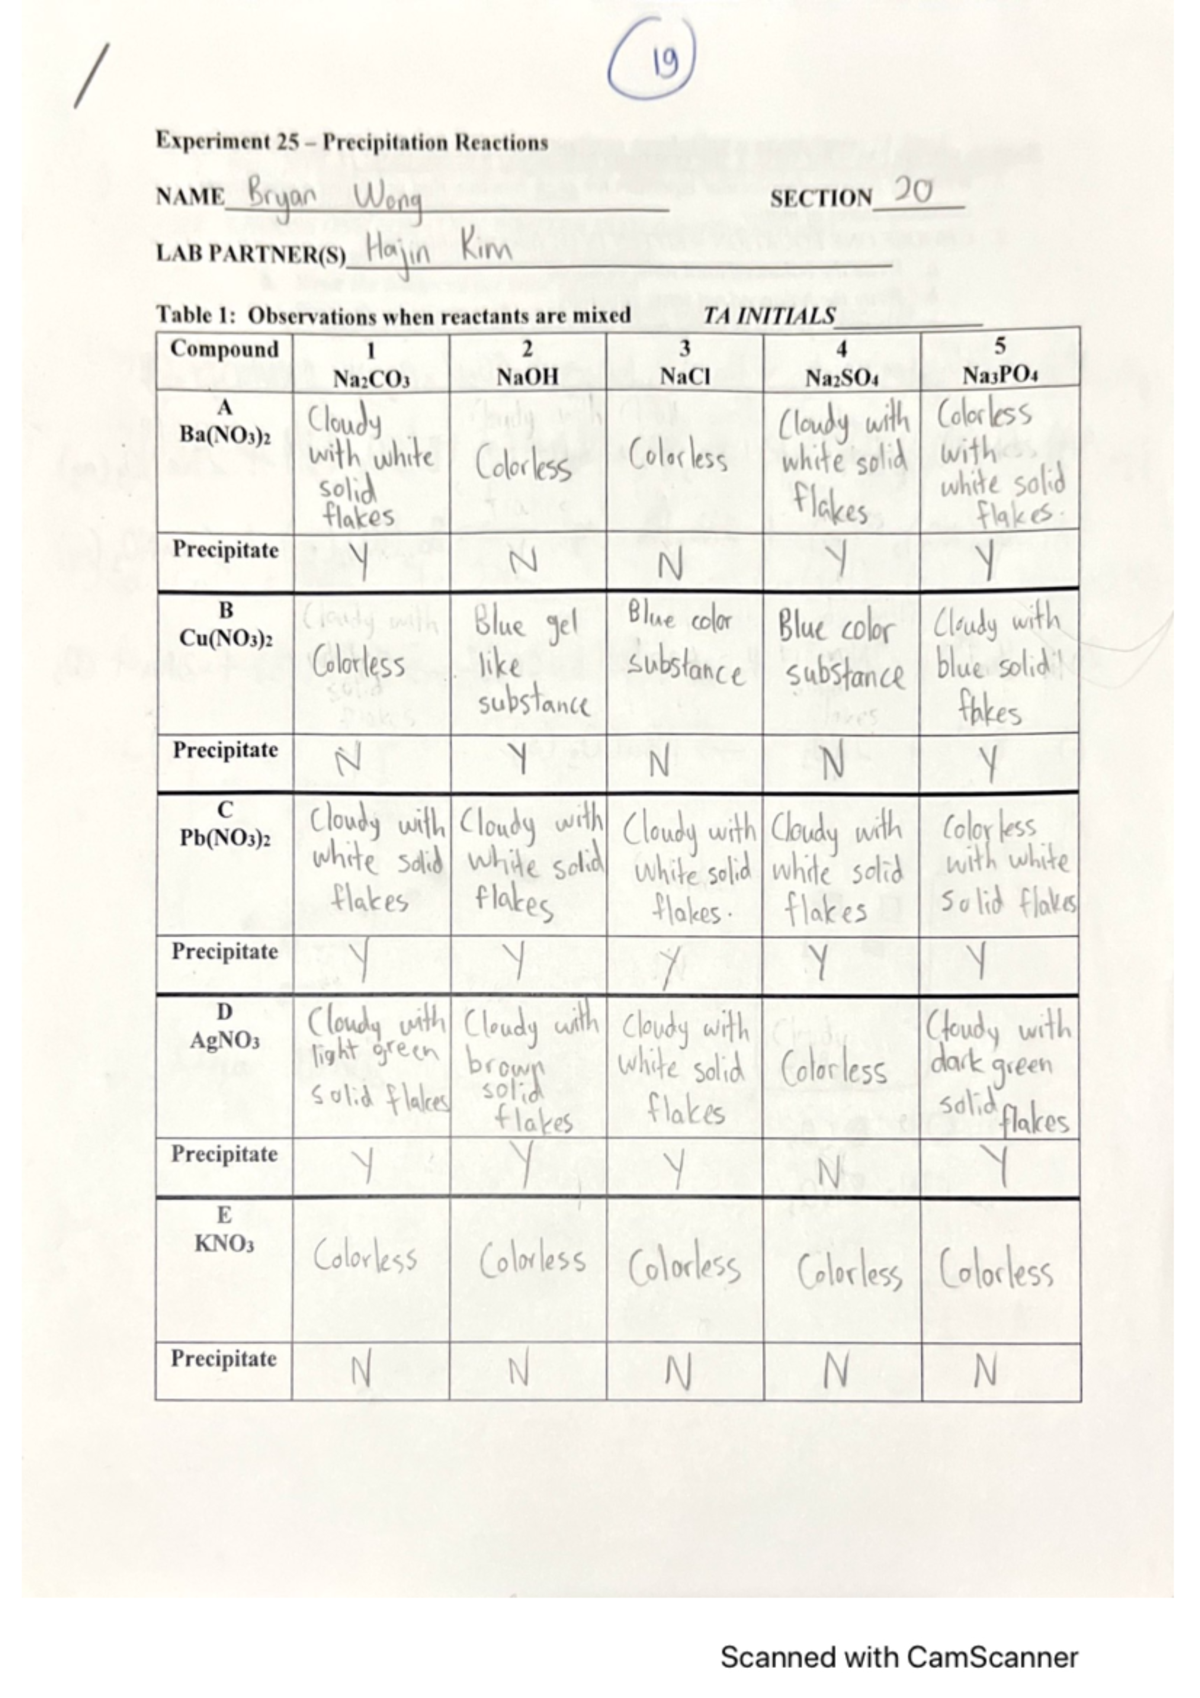 19
Experiment 25 – Precipitation Reactions
NAME Bryan Wong SECTION 20
LAB PARTNER(S) Hajin Kim
Table 1: Observations when reactants are mixed TA INITIALS
Compound 1 2 3 4 5
Na₂CO₃ NaOH NaCl Na₂SO₄ Na₃PO₄
A
Ba(NO₃)₂
Cloudy
with white
solid
flakes
Colorless
Colorless
Cloudy with
white solid
flakes
Colorless
with
white solid
flakes.
Precipitate Y N N Y Y
B
Cu(NO₃)₂
Colorless
Blue gel
like
substance
Blue color
substance
Blue color
substance
Cloudy with
blue solid
flakes
Precipitate N Y N N Y
C
Pb(NO₃)₂
Cloudy with
white solid
flakes
Cloudy with
white solid
flakes
Cloudy with
white solid
flakes.
Cloudy with
white solid
flakes
Colorless
with white
solid flakes
Precipitate Y Y Y Y Y
D
AgNO₃
Cloudy with
light green
solid flakes
Cloudy with
brown
solid
flakes
Cloudy with
white solid
flakes
Colorless
Cloudy with
dark green
solid flakes
Precipitate Y Y Y N Y
E
KNO₃
Colorless
Colorless
Colorless
Colorless
Colorless
Precipitate N N N N N
Scanned with CamScanner